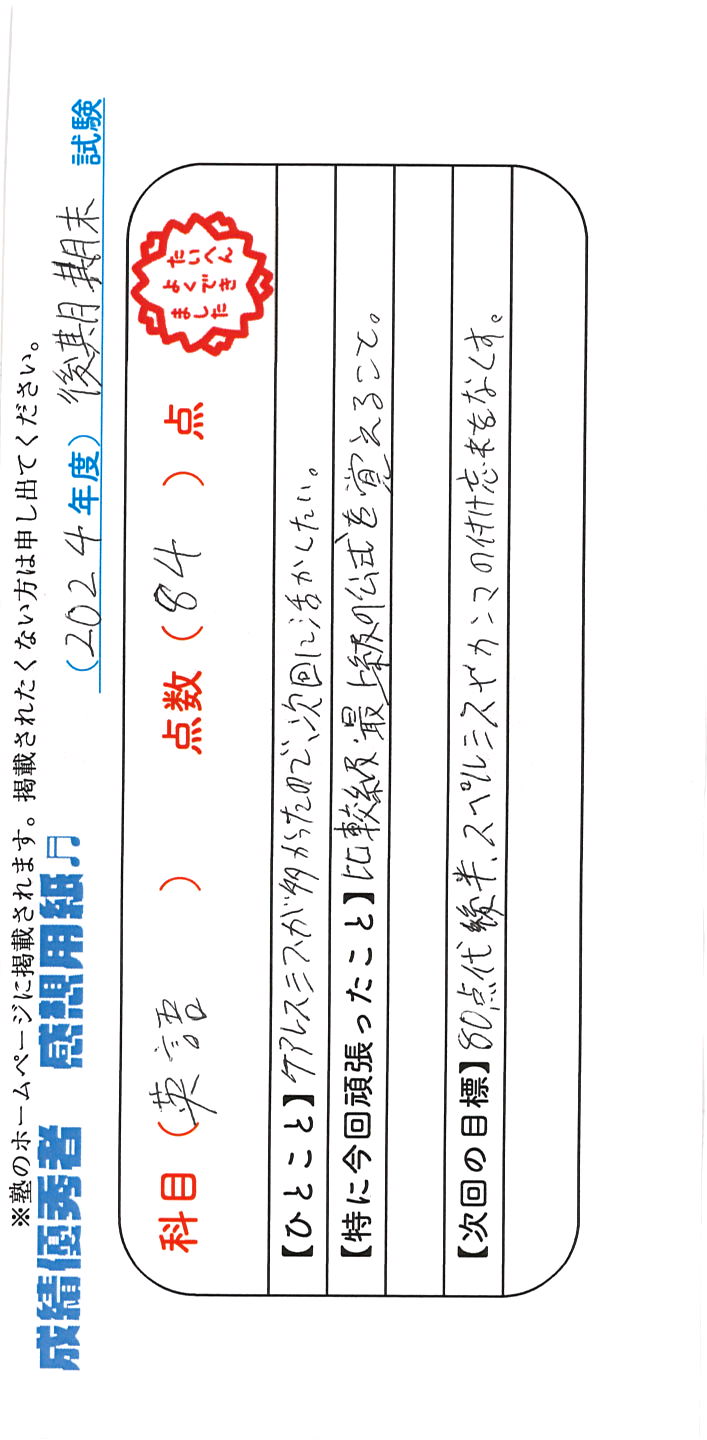 ※塾のホームページに掲載されます。掲載されたくない方は申し出てください。
成績優秀者 感想用紙♬ (2024年度) 後期期末 試験
科目 (英語) 点数 (84) 点
たいへん
よくでき
ました
【ひとこと】ケアレスミスが多かったので、次回に活かしたい。
【特に今回頑張ったこと】比較級・最上級の公式を覚えること。
【次回の目標】80点代後半、スペルミスやカンマの付け忘れをなくす。